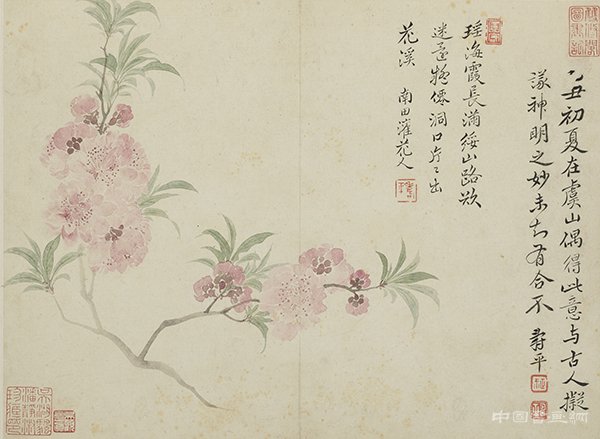 乙丑初夏在虞山偶得此意與古人擬
議神明之妙未知有合不 壽平
瑤海霞長滿綏山路欲
迷還疑僊洞口片々出
花溪 南田灌花人
中国書画網